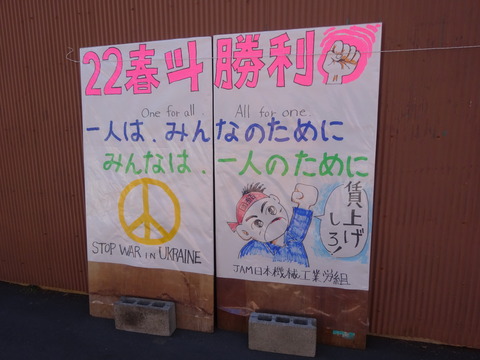 22春斗勝利
One for all All for one.
一人は、みんなのために
みんなは、一人のために
STOP WAR IN UKRAINE
賃上げ
しろ!
JAM日本機械工業労組